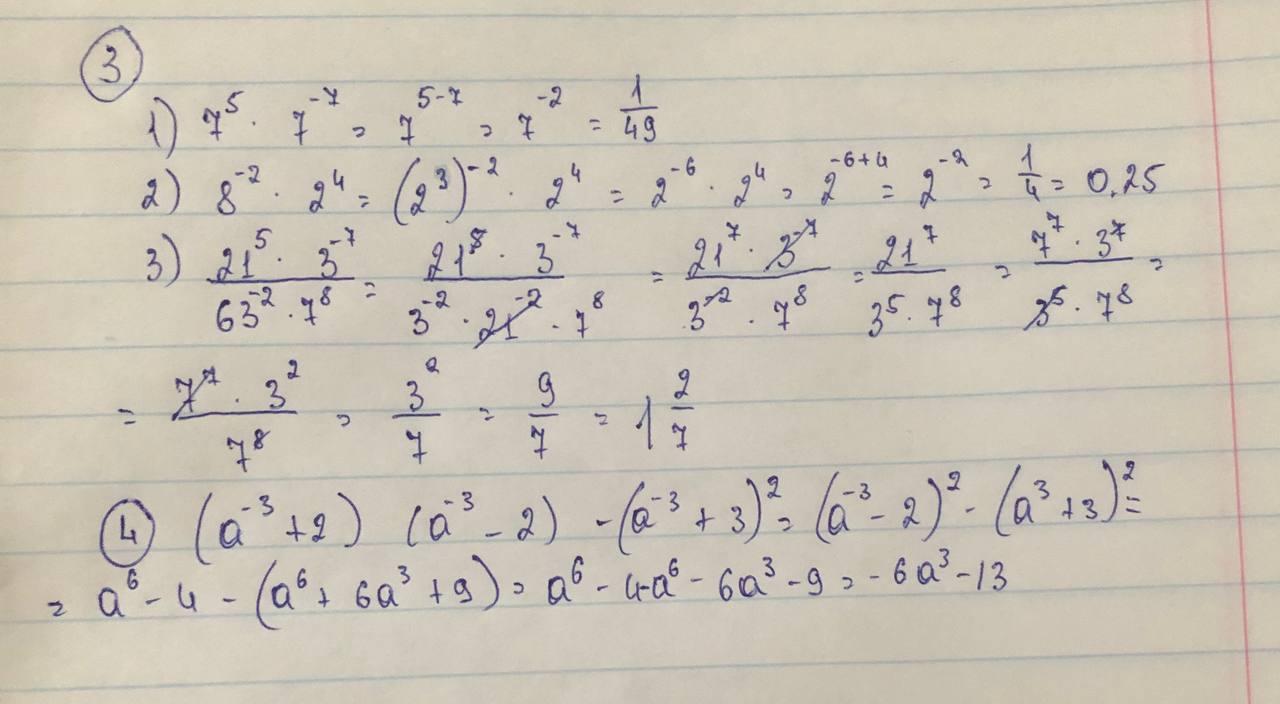 3
1) 7^5 · 7^-7 = 7^5-7 = 7^-2 = 1/49
2) 8^-2 · 2^4 = (2^3)^-2 · 2^4 = 2^-6 · 2^4 = 2^-6+4 = 2^-2 = 1/4 = 0,25
3) 21^5 · 3^-7 / 63^-2 · 7^8 = 21^5 · 3^-7 / 3^-2 · 21^-2 · 7^8 = 21^7 · 3^-7 / 3^-2 · 7^8 = 21^7 / 3^5 · 7^8 = 7^7 · 3^7 / 3^5 · 7^8 =
= 7^7 · 3^2 / 7^8 = 3^2 / 7 = 9/7 = 1 2/7
4 (a^-3 + 2) (a^-3 - 2) - (a^-3 + 3)^2 = (a^-3 - 2)^2 - (a^3 + 3)^2 =
= a^6 - 4 - (a^6 + 6a^3 + 9) = a^6 - 4 - a^6 - 6a^3 - 9 = -6a^3 - 13